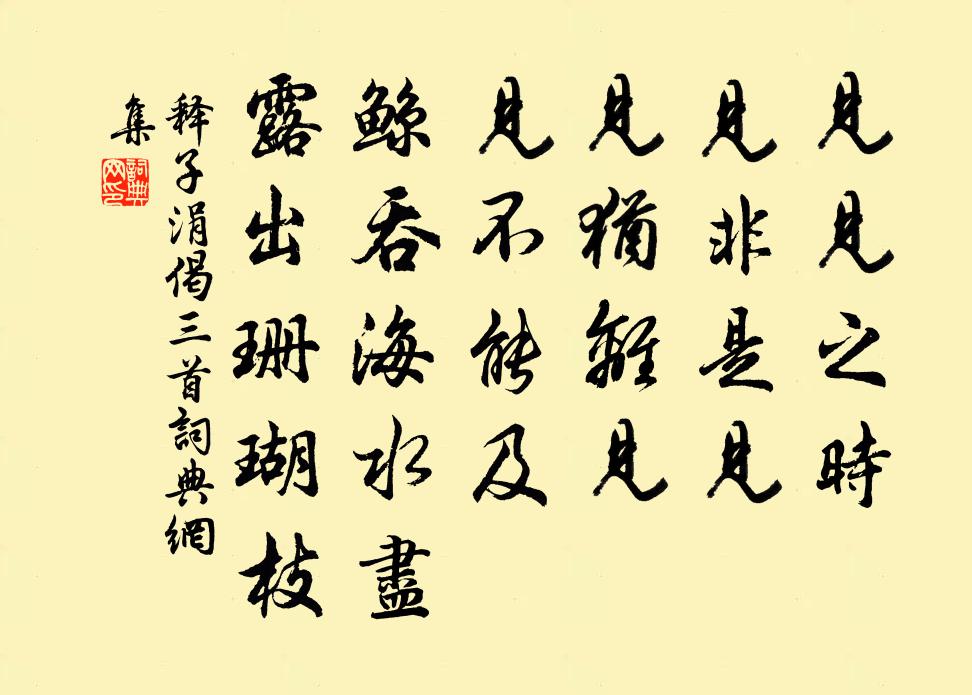 見見之時
見非是見
見猶離見
見不能及
鯨吞海水盡
露出珊瑚枝
释子涓偈三首詞典網
集
詞典
网印